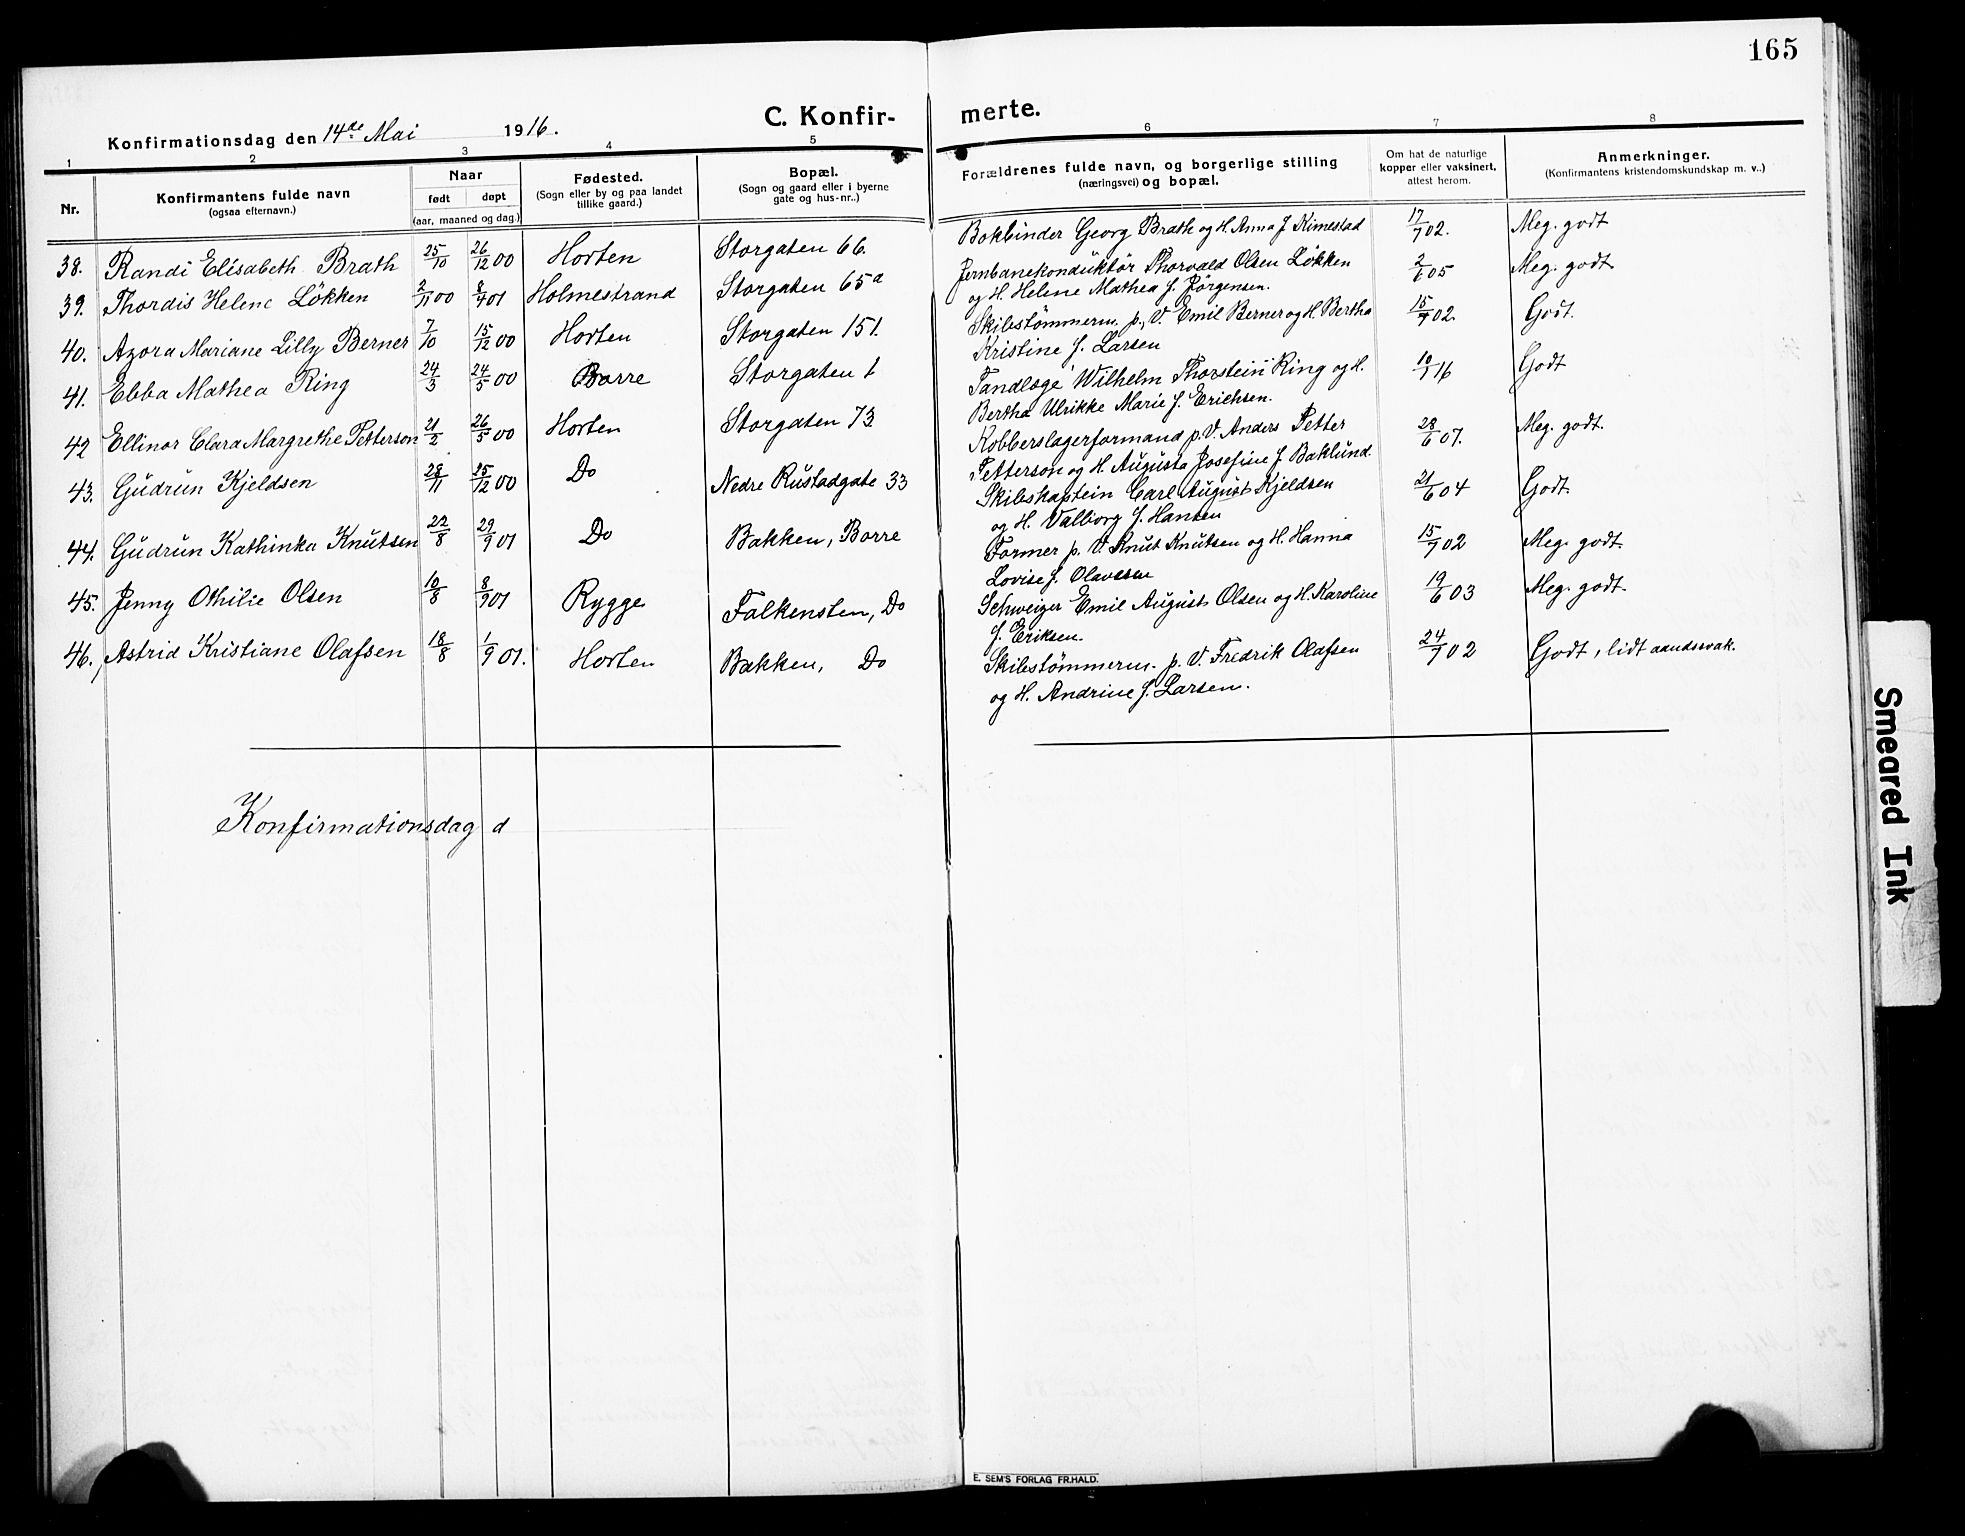 165
C. Konfir- merte.
Konfirmationsdag den 14de Mai 1916.
1 2 3 4 5 6 7 8
Nr.
Konfirmantens fulde navn
(ogsaa efternavn.)
Naar
født døpt
(aar, maaned og dag.)
Fødested.
(Sogn eller by og paa landet
tillike gaard.)
Bopæl.
(Sogn og gaard eller i byerne
gate og hus-nr..)
Forældrenes fulde navn, og borgerlige stilling
(næringsvei) og bopæl.
Om hat de naturlige
kopper eller vaksinert,
attest herom.
Anmerkninger.
(Konfirmantens kristendomskundskap m. v..)
38. Randi Elisabeth Brath 25/10 26/12 00 Horten Storgaten 66. Bokbinder Georg Brath og H. Anna J Kimestad 17/7 02. Meg. godt
39. Thordis Helene Løkken 2/11 00 8/4 01 Holmestrand Storgaten 65a Jernbanekonduktör Thorvald Olsen Løkken 2/6 05 Meg. godt
og H. Helene Mathea f. Jörgensen.
40. Azora Mariane Lilly Berner 7/10 15/12 00 Horten Storgaten 151. Skibstömmerm. p. V. Emil Berner og H Bertha 15/7 02. Godt.
Kristine f. Larsen
41. Ebba Mathea Ring 24/3 24/5 00 Borre Storgaten 1 Tandlæge Wilhelm Thorstein Ring og H. 10/1 16 Godt
Bertha Ulrikke Marie f. Erichsen.
42 Ellinor Clara Margrethe Petterson 21/2 26/5 00 Horten Storgaten 73 Kobberslagerformand p. V. Anders Petter 28/6 07. Meg. godt.
Petterson og H. Augusta Josefine f. Baklund
43. Gudrun Kjeldsen 28/11 25/12 00 Do Nedre Rustadgate 33 Skibskaptein Carl August Kjeldsen 21/6 04 Godt.
og H. Valborg f. Hansen
44. Gudrun Kathinka Knutsen 22/8 29/9 01 Do Bakken, Borre Former p. V. Knut Knutsen og H. Hanna 15/7 02 Meg. godt.
Lovise f. Olavesen
45. Jenny Othilie Olsen 10/8 8/9 01 Rygge Falkensten, Do Schweizer Emil August Olsen og H. Karoline 19/6 03 Meg. godt.
f. Eriksen.
46. Astrid Kristiane Olafsen 18/8 1/9 01. Horten Bakken, Do Skibstömmerm. p. V. Fredrik Olafsen 24/7 02 Godt, lidt aandssvak.
og H. Andrine f. Larsen.
Konfirmationsdag d
E. SEM'S FORLAG FR.HALD.
Smeared Ink